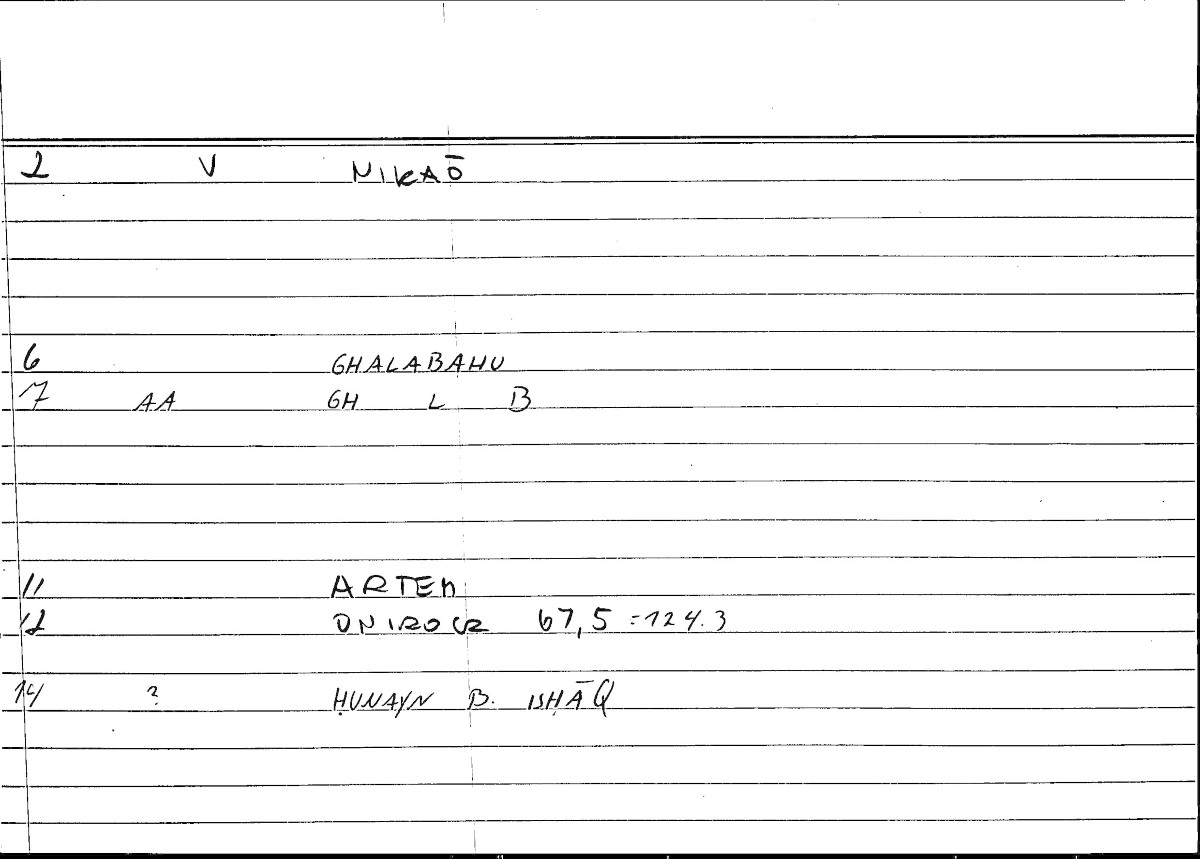 2 V NIKAŌ
6 GHALABAHU
7 AA GH L B
11 ARTEM
12 ONIROCR 67,5 = 124.3
14 ? ḤUNAYN B. ISḤĀQ